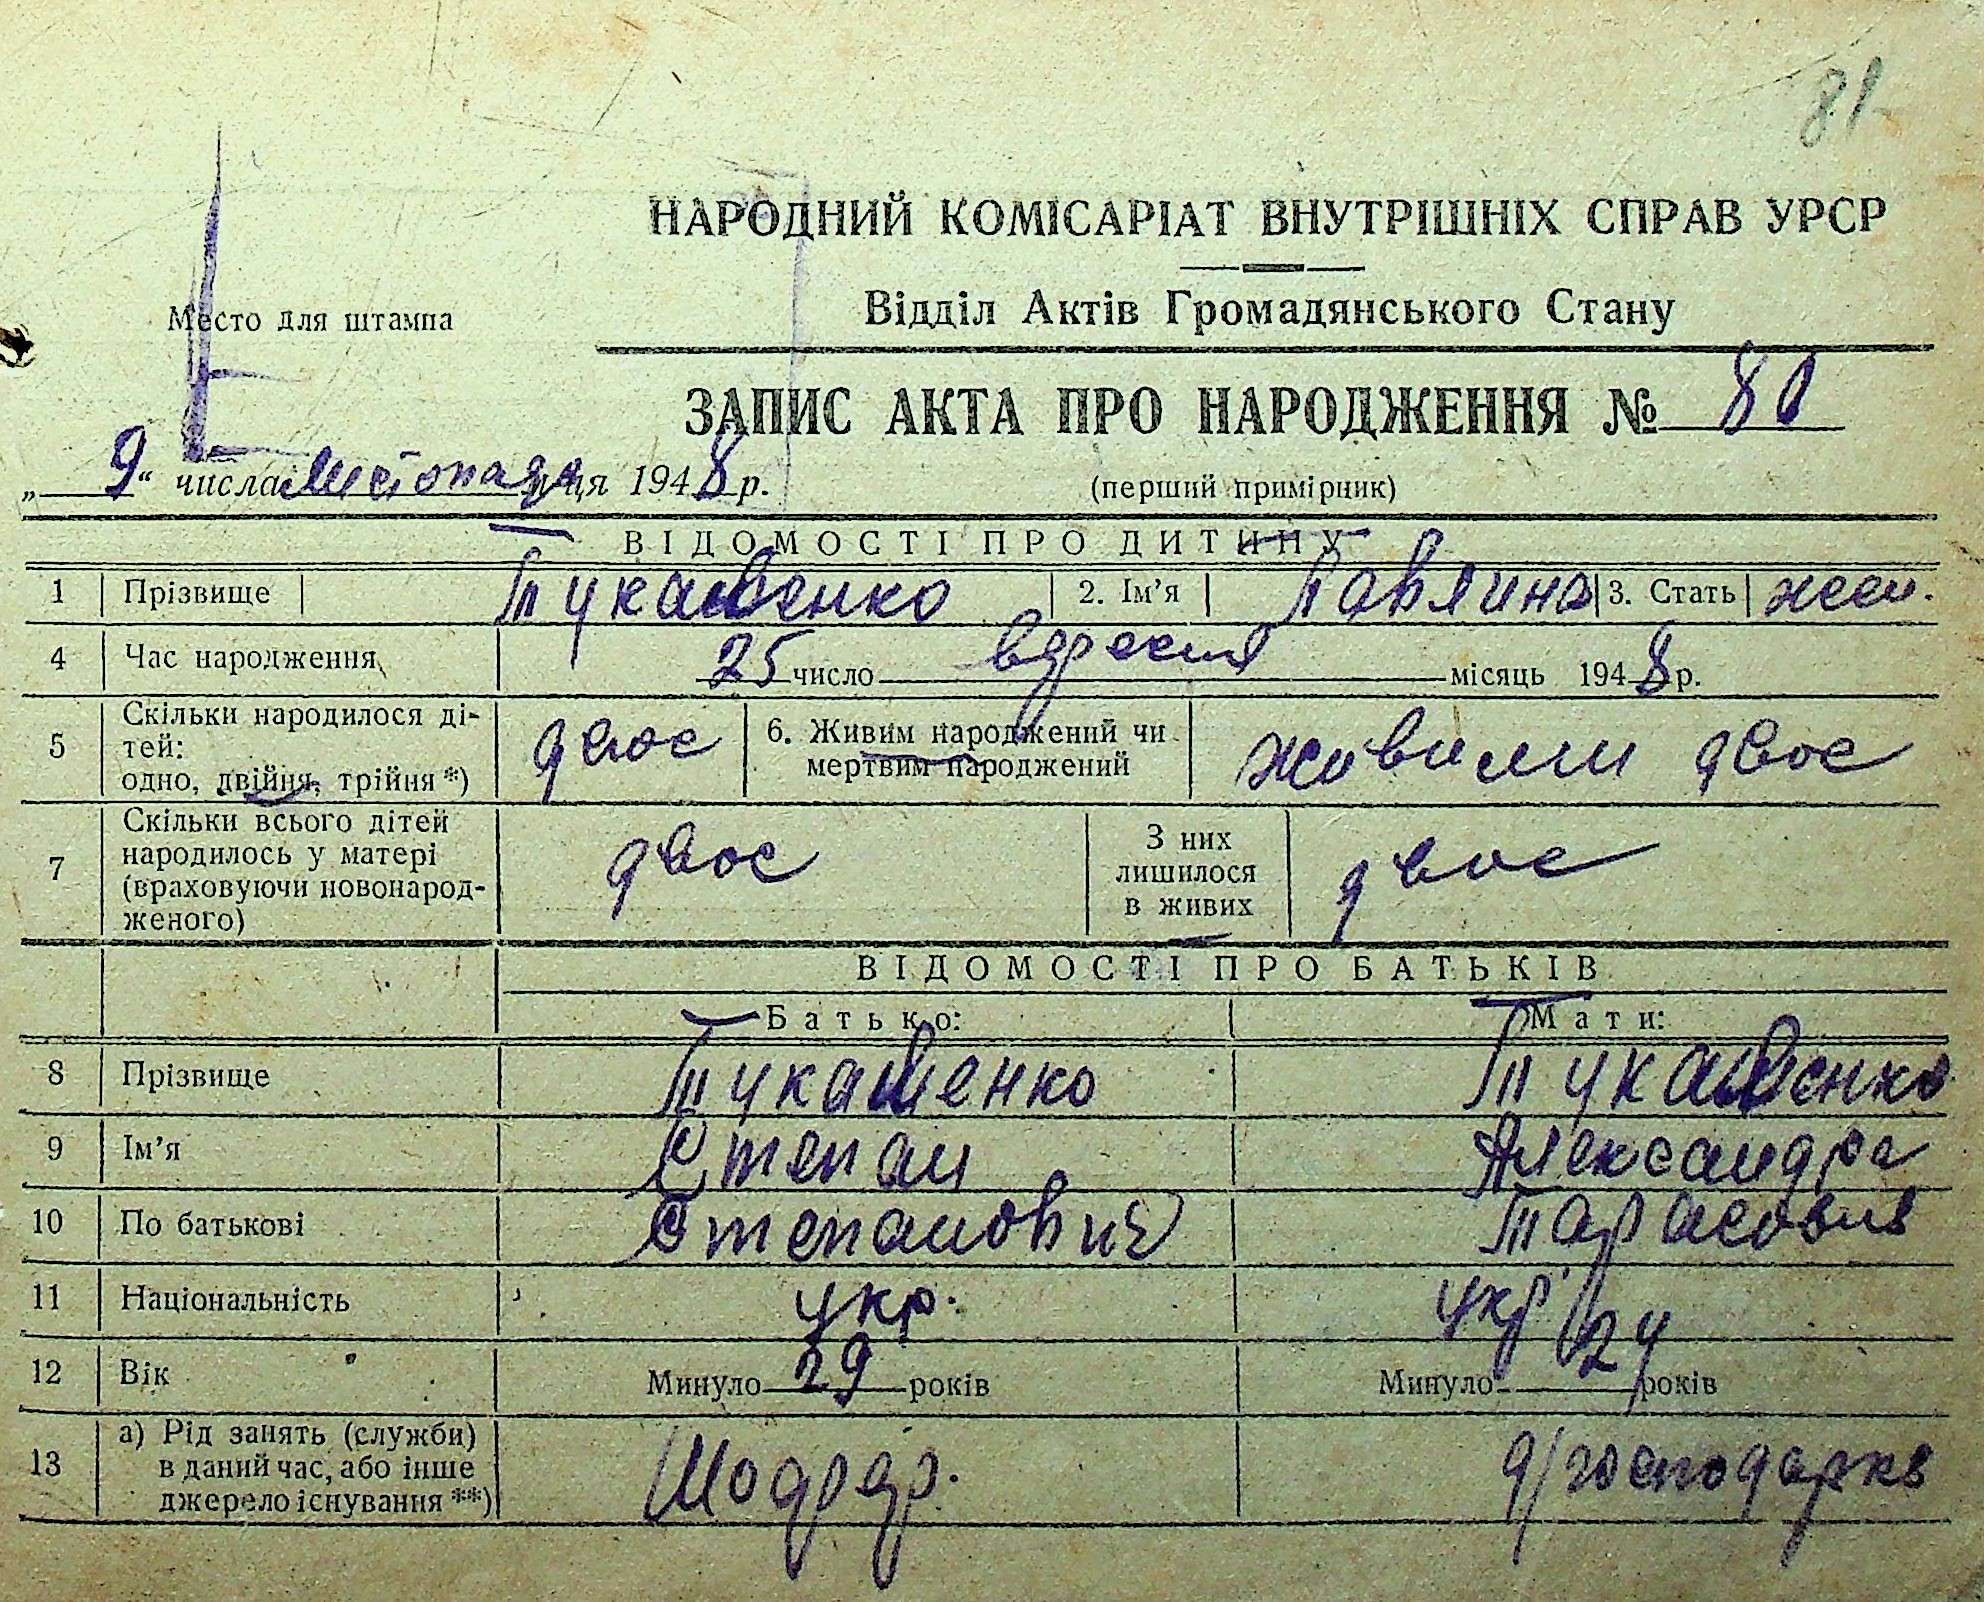 81
НАРОДНИЙ КОМІСАРІАТ ВНУТРІШНІХ СПРАВ УРСР
Место для штампа
Відділ Актів Громадянського Стану
ЗАПИС АКТА ПРО НАРОДЖЕННЯ № 80
„ 9 “ числа листопада м-ця 1948 р.
(перший примірник)
ВІДОМОСТІ ПРО ДИТИНУ
1 Прізвище Тукашенко 2. Ім’я Павлина 3. Стать жен.
4 Час народження 25 число вересня місяць 1948 р.
5 Скільки народилося ді-
тей:
одно, двійня, трійня *) двоє
6. Живим народжений чи
мертвим народжений живими двоє
7 Скільки всього дітей
народилось у матері
(враховуючи новонарод-
женого) двоє
З них
лишилося
в живих двоє
ВІДОМОСТІ ПРО БАТЬКІВ
Батько: Мати:
8 Прізвище Тукашенко Тукашенко
9 Ім’я Степан Александра
10 По батькові Степанович Тарасовна
11 Національність укр. укр
12 Вік Минуло 29 років Минуло 24 років
13 а) Рід занять (служби)
в даний час, або інше
джерело існування **)
д/господарка